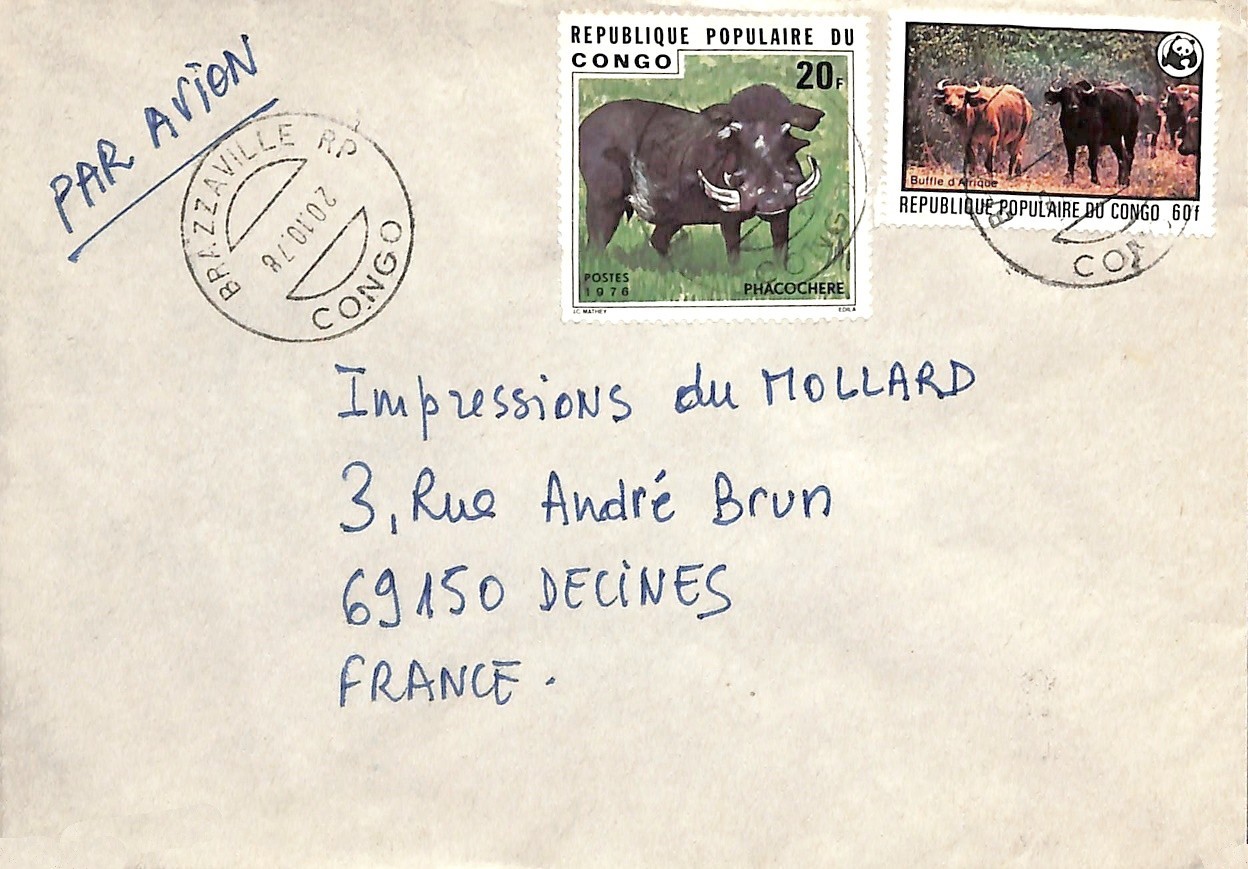 PAR AViON
BRAZZAVILLE RP
20.10.78
CONGO
REPUBLIQUE POPULAIRE DU
CONGO
20F
POSTES
1976
PHACOCHERE
J.C. MATHEY
EDILA
CONG
Buffle d'Afrique
REPUBLIQUE POPULAIRE DU CONGO 60f
B
CON
Impressions du MOLLARD
3, Rue André Brun
69150 DECiNES
FRANCE.